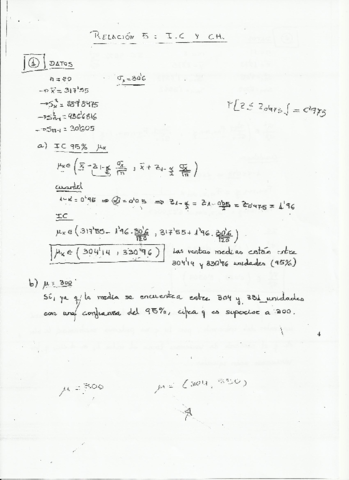 RELACIÓN 5: I.C Y C.H.
① DATOS
n=20 σx=30'6
→ x̄=317'55
P[Z ≤ Z0'975] = 0'975
a) IC 95% μx
μx ∈ (x̄ - Z1-α/2 σx/√n , x̄ + Z1-α/2 σx/√n)
1-α=0'95 ⇒ α=0'05 ⇒ Z1-α/2 = Z1-0'05/2 = Z0'975 = 1'96
IC
μx ∈ (317'55 - 1'96·30'6/√20 , 317'55 + 1'96·30'6/√20)
μx ∈ (304'14 , 330'96) Las ventas medias están entre
304'14 y 330'96 unidades (95%)
b) μ = 300
Sí, ya q la media se encuentra entre 304 y 331 unidades
con una confianza del 95%, cifra q es superior a 300.
μ=300 μ=(304, 330)